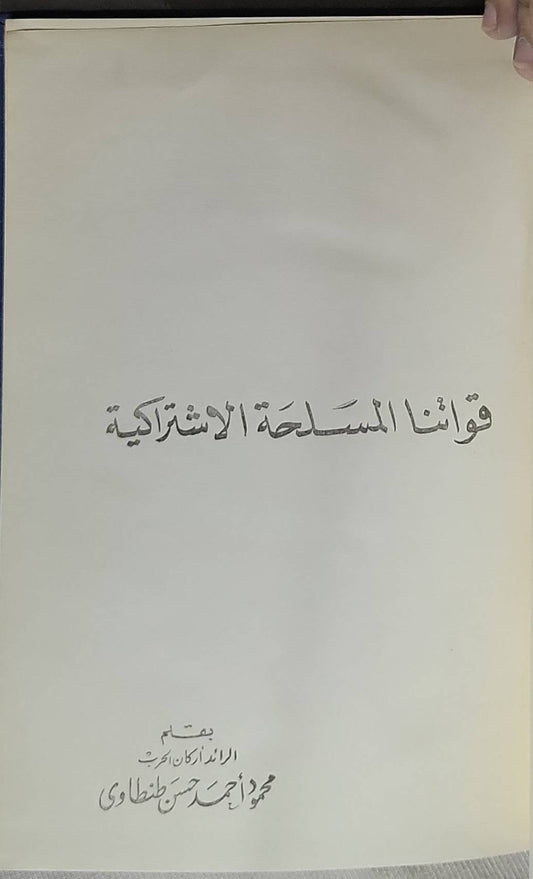 قواتنا المسلحة الاشتراكية
بقلم
الرائد أركان الحرب
محمود أحمد حسن طنطاوى